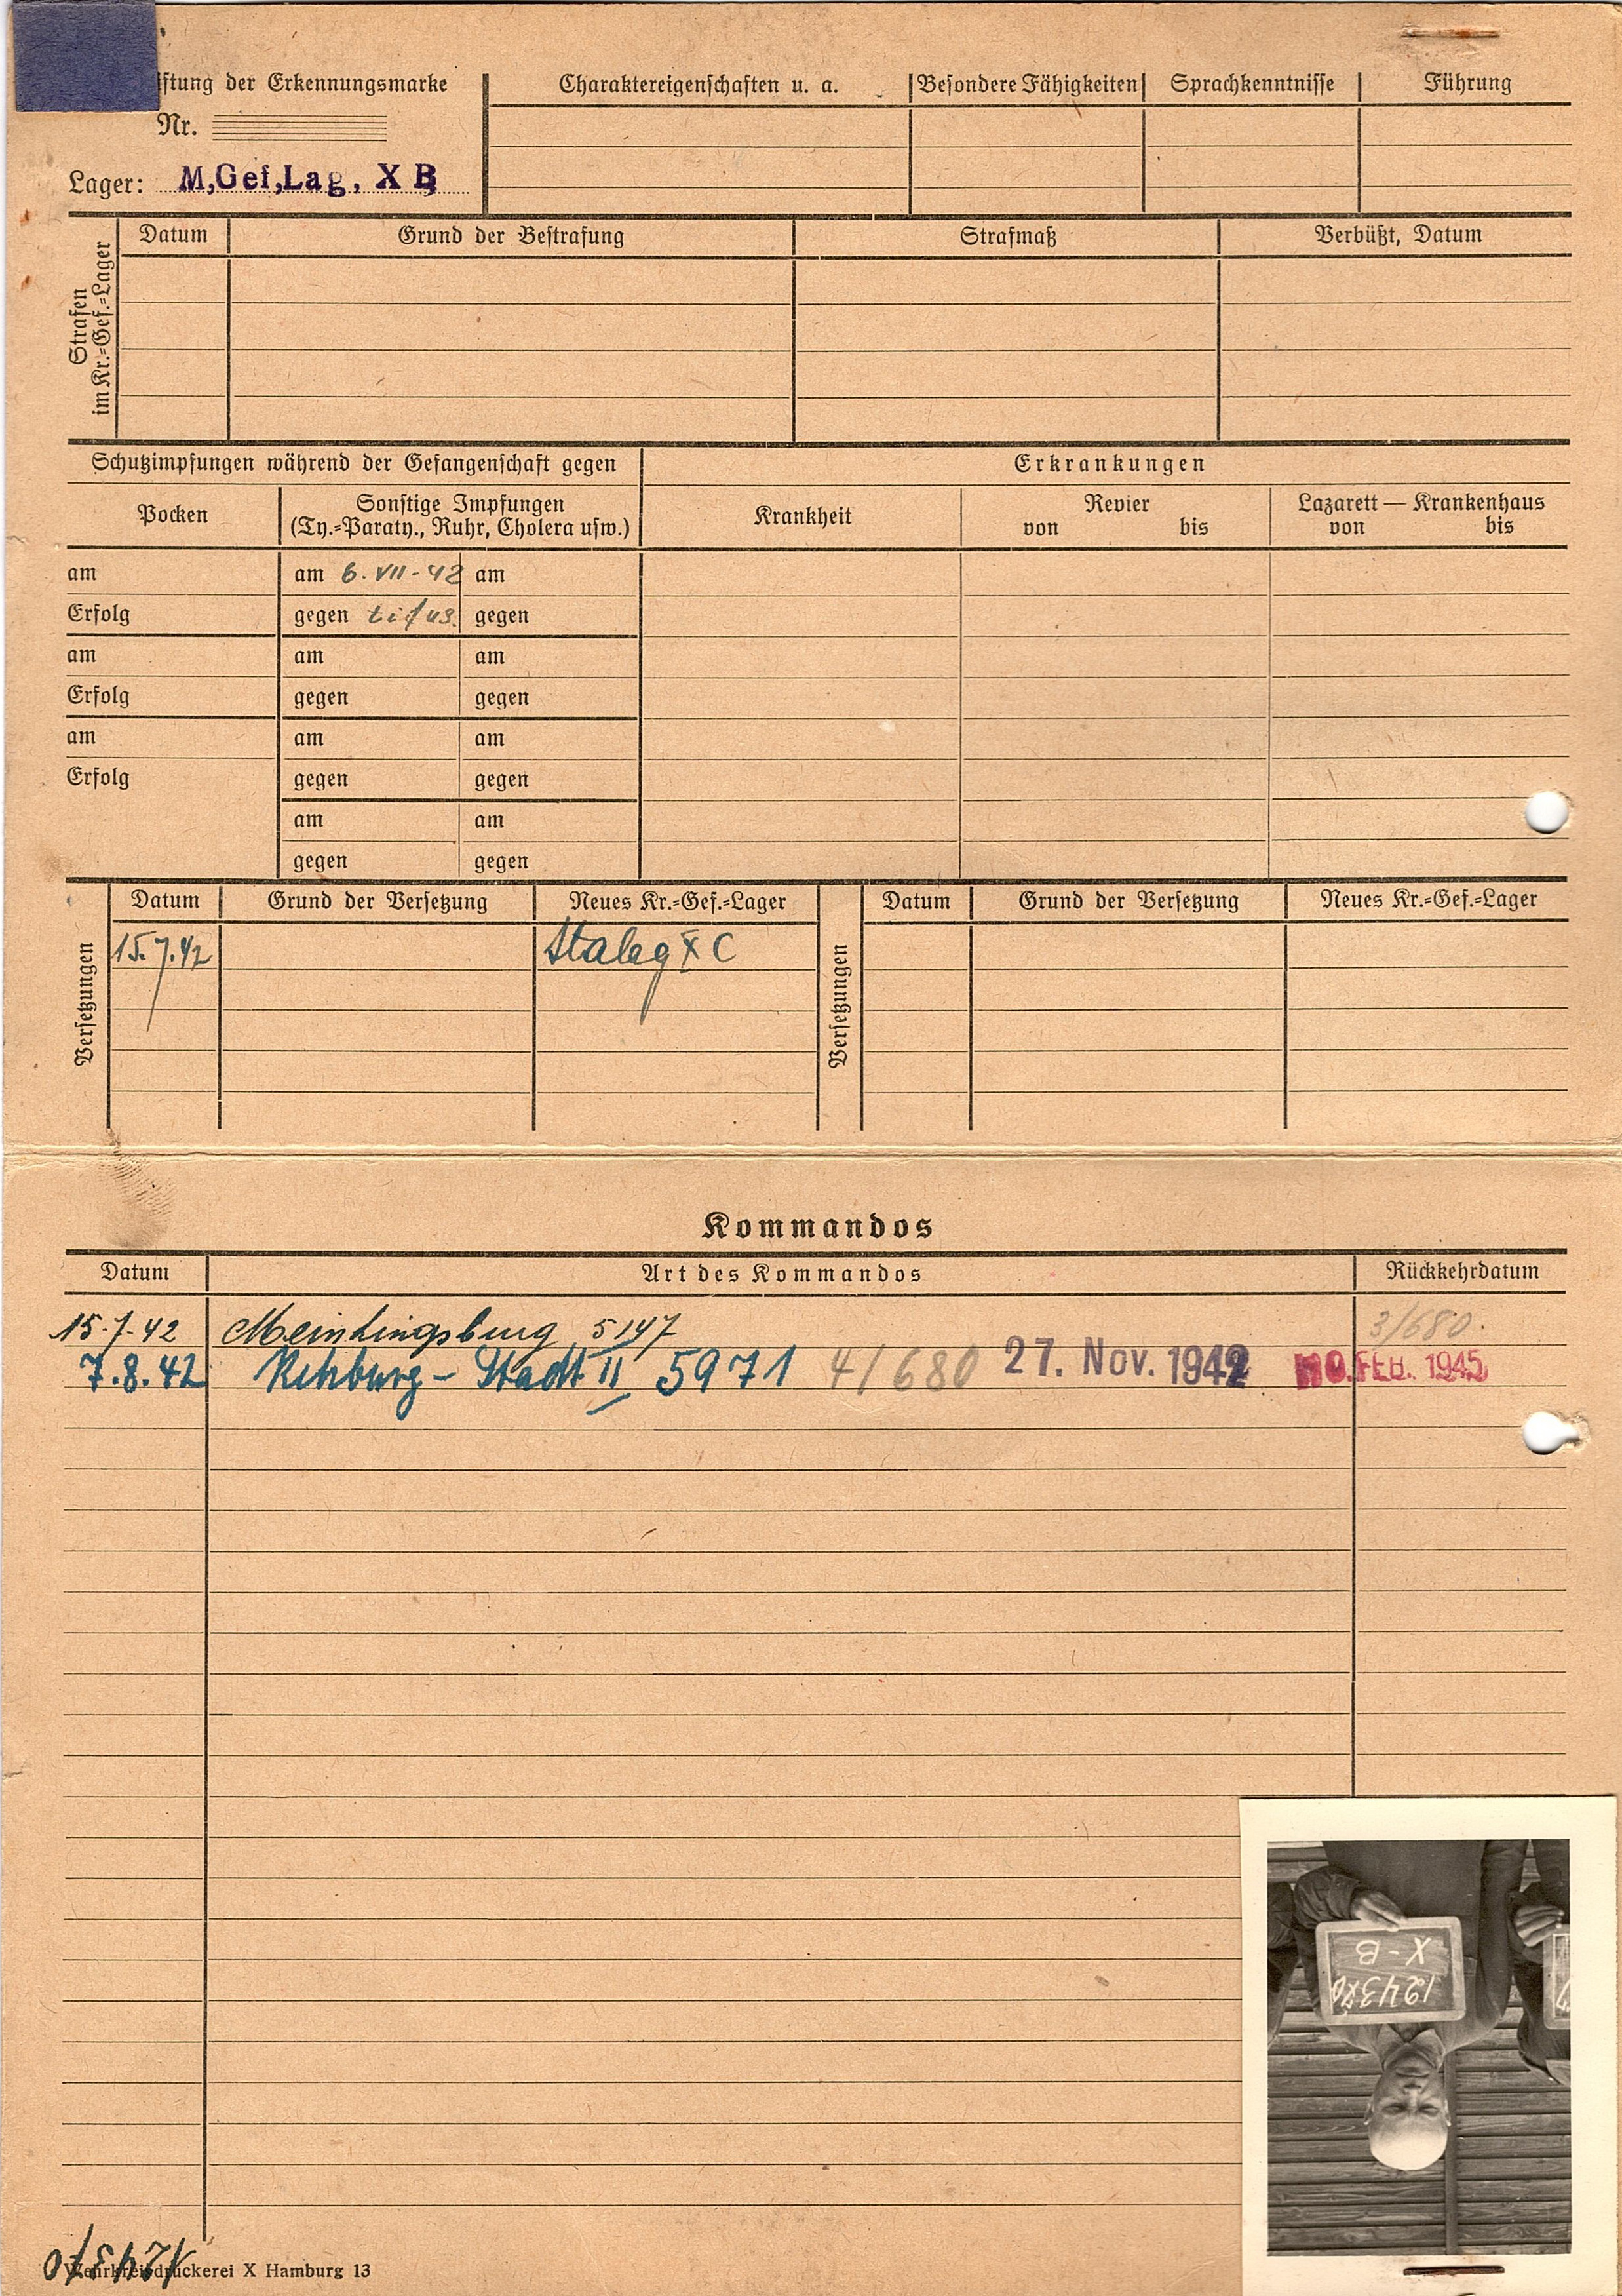 iftung der Erkennungsmarke
Nr.
Lager: M,Gef,Lag, X B
Charaktereigenschaften u. a. Besondere Fähigkeiten Sprachkenntnisse Führung
Strafen im Kr.=Gef.=Lager
Datum Grund der Bestrafung Strafmaß Verbüßt, Datum
Schutzimpfungen während der Gefangenschaft gegen Erkrankungen
Pocken
Sonstige Impfungen
(Ty.=Paraty., Ruhr, Cholera usw.)
Krankheit
Revier
von bis
Lazarett — Krankenhaus
von bis
am am 6. VII - 42 am
Erfolg gegen tifus. gegen
am am am
Erfolg gegen gegen
am am am
Erfolg gegen gegen
am am
gegen gegen
Versetzungen
Datum Grund der Versetzung Neues Kr.=Gef.=Lager
15. 7. 42 Stalag X C
Versetzungen
Datum Grund der Versetzung Neues Kr.=Gef.=Lager
Kommandos
Datum Art des Kommandos Rückkehrdatum
15. 7. 42 5147 3/680.
7. 8. 42 Rehburg - Stadt II 5971 4/680 27. Nov. 1942 FEB. 1945
X - B
124370
124370
Wehrkreisdruckerei X Hamburg 13